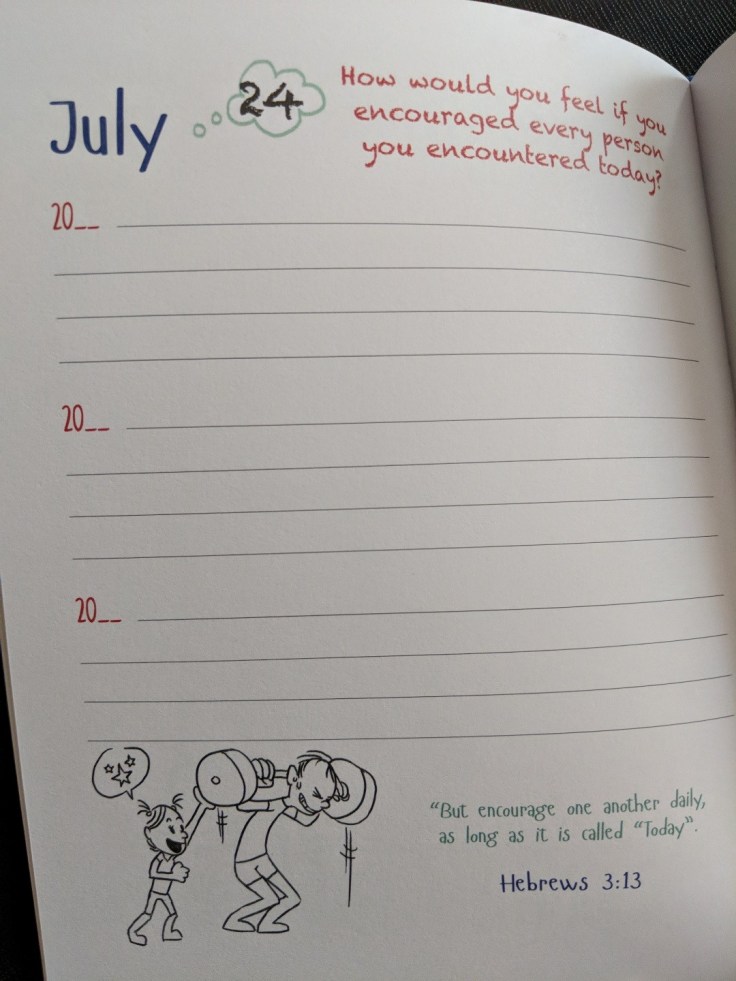 July
24
How would you feel if you
encouraged every person
you encountered today?
20__
20__
20__
“But encourage one another daily,
as long as it is called “Today”.
Hebrews 3:13